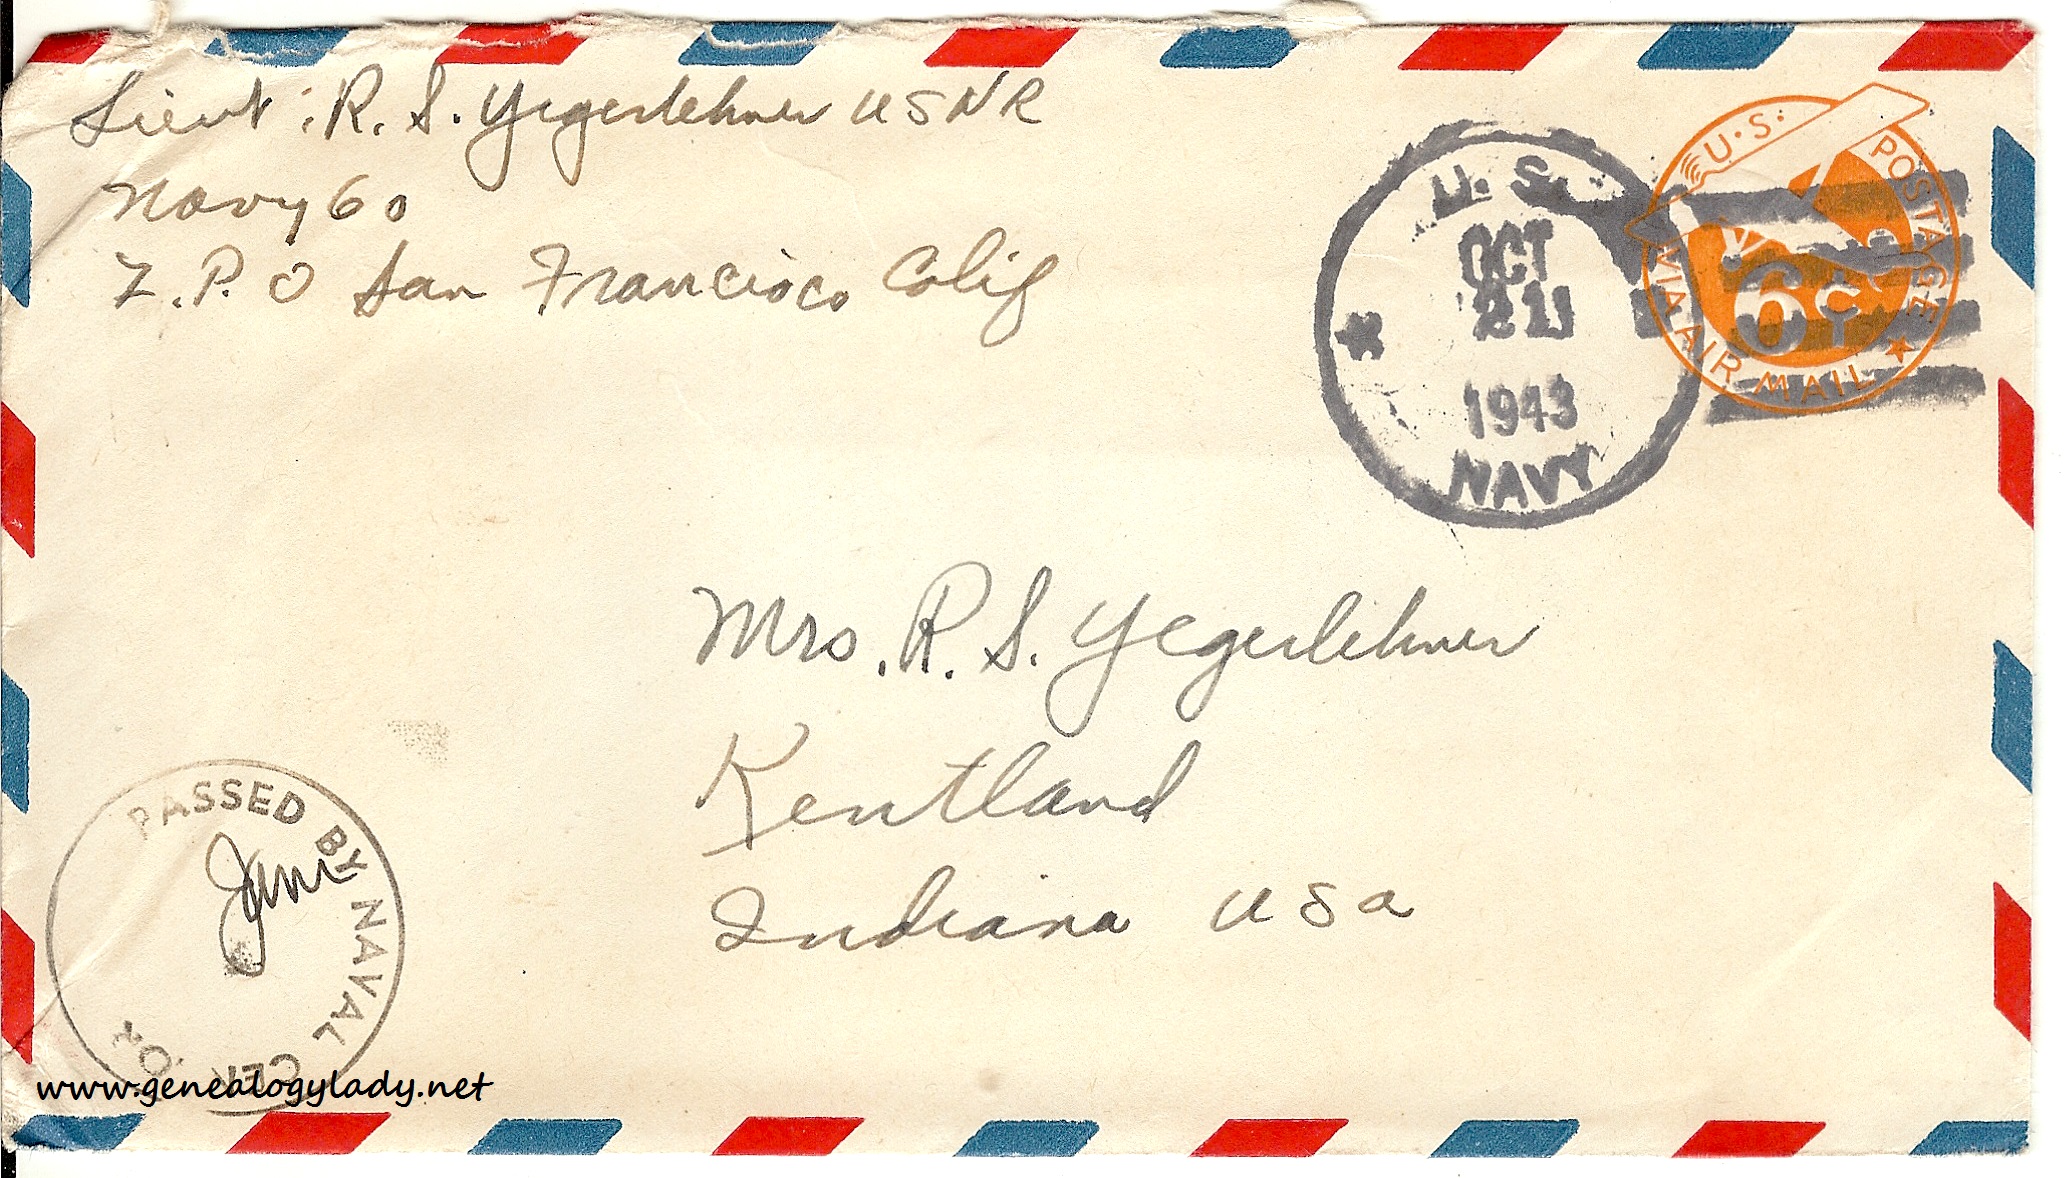 Lieut: R. S. Yegerlehner USNR
Navy 60
F.P.O San Francisco Calif
U.S.
OCT
21
1943
NAVY
U.S. POSTAGE
6¢
VIA AIR MAIL
Mrs. R. S. Yegerlehner
Kentland
Indiana USA
PASSED BY NAVAL
www.genealogylady.net